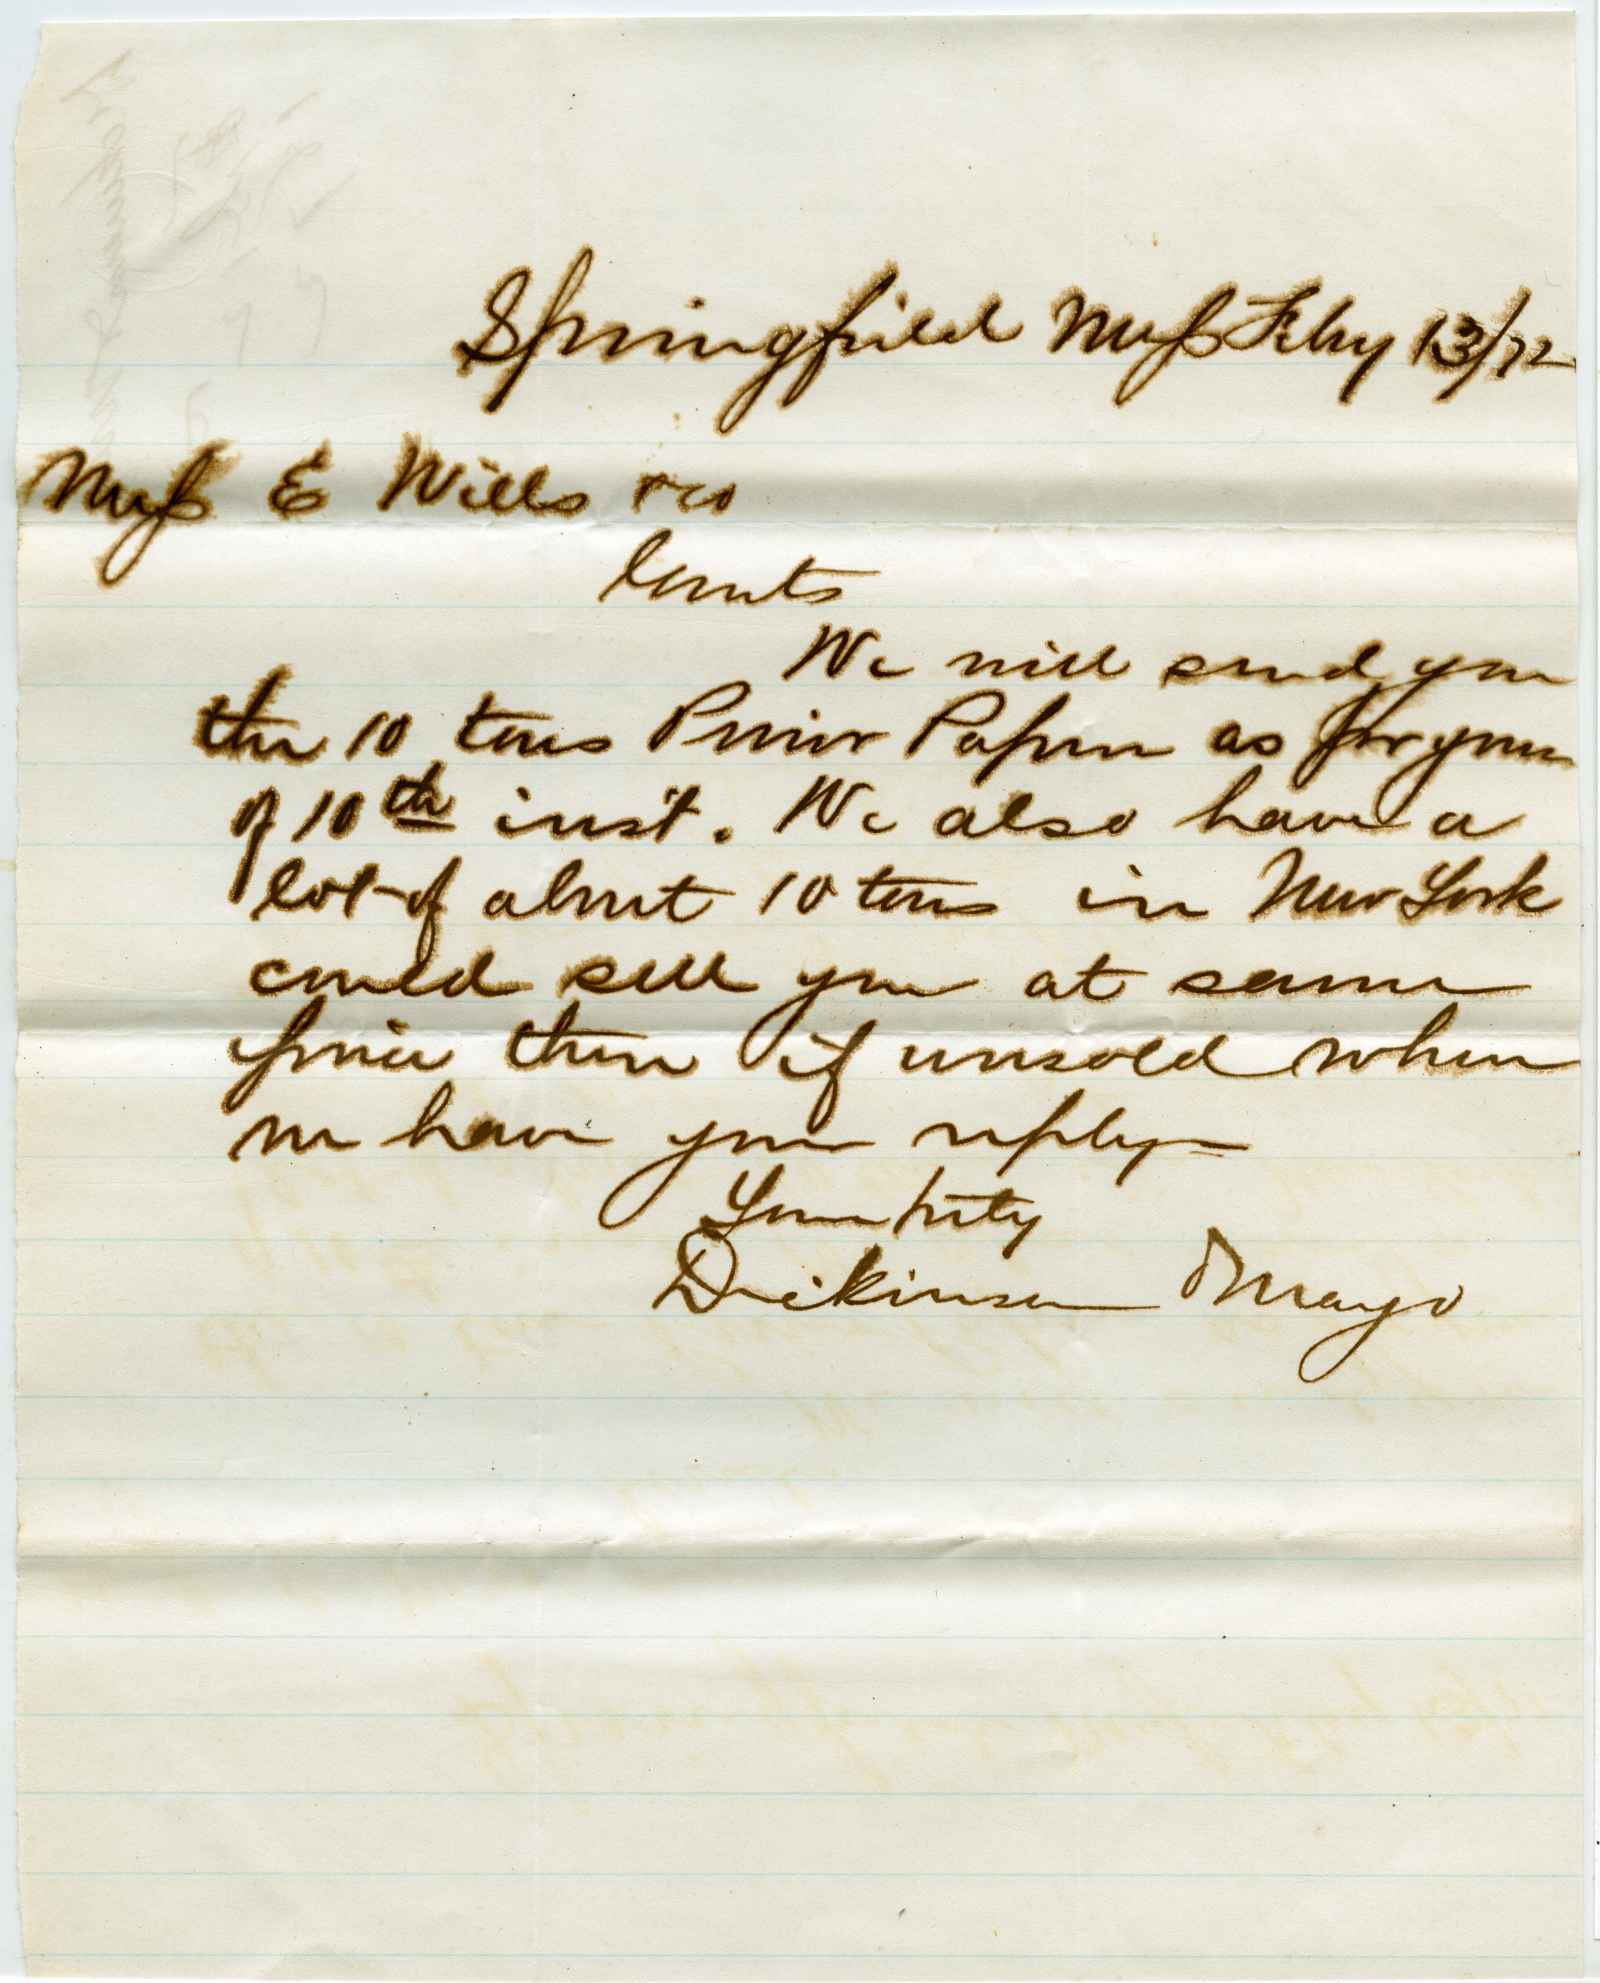 Springfield Mass Feby 13/72
Mess E Wills & Co
Gents
We will send you
the 10 tons Prior Papers as per yours
of 10th inst. We also have a
lot of about 10 tons in New York
could sell you at same
price then if unsold when
we have your reply
Yours truly
Dickinson & Mayo